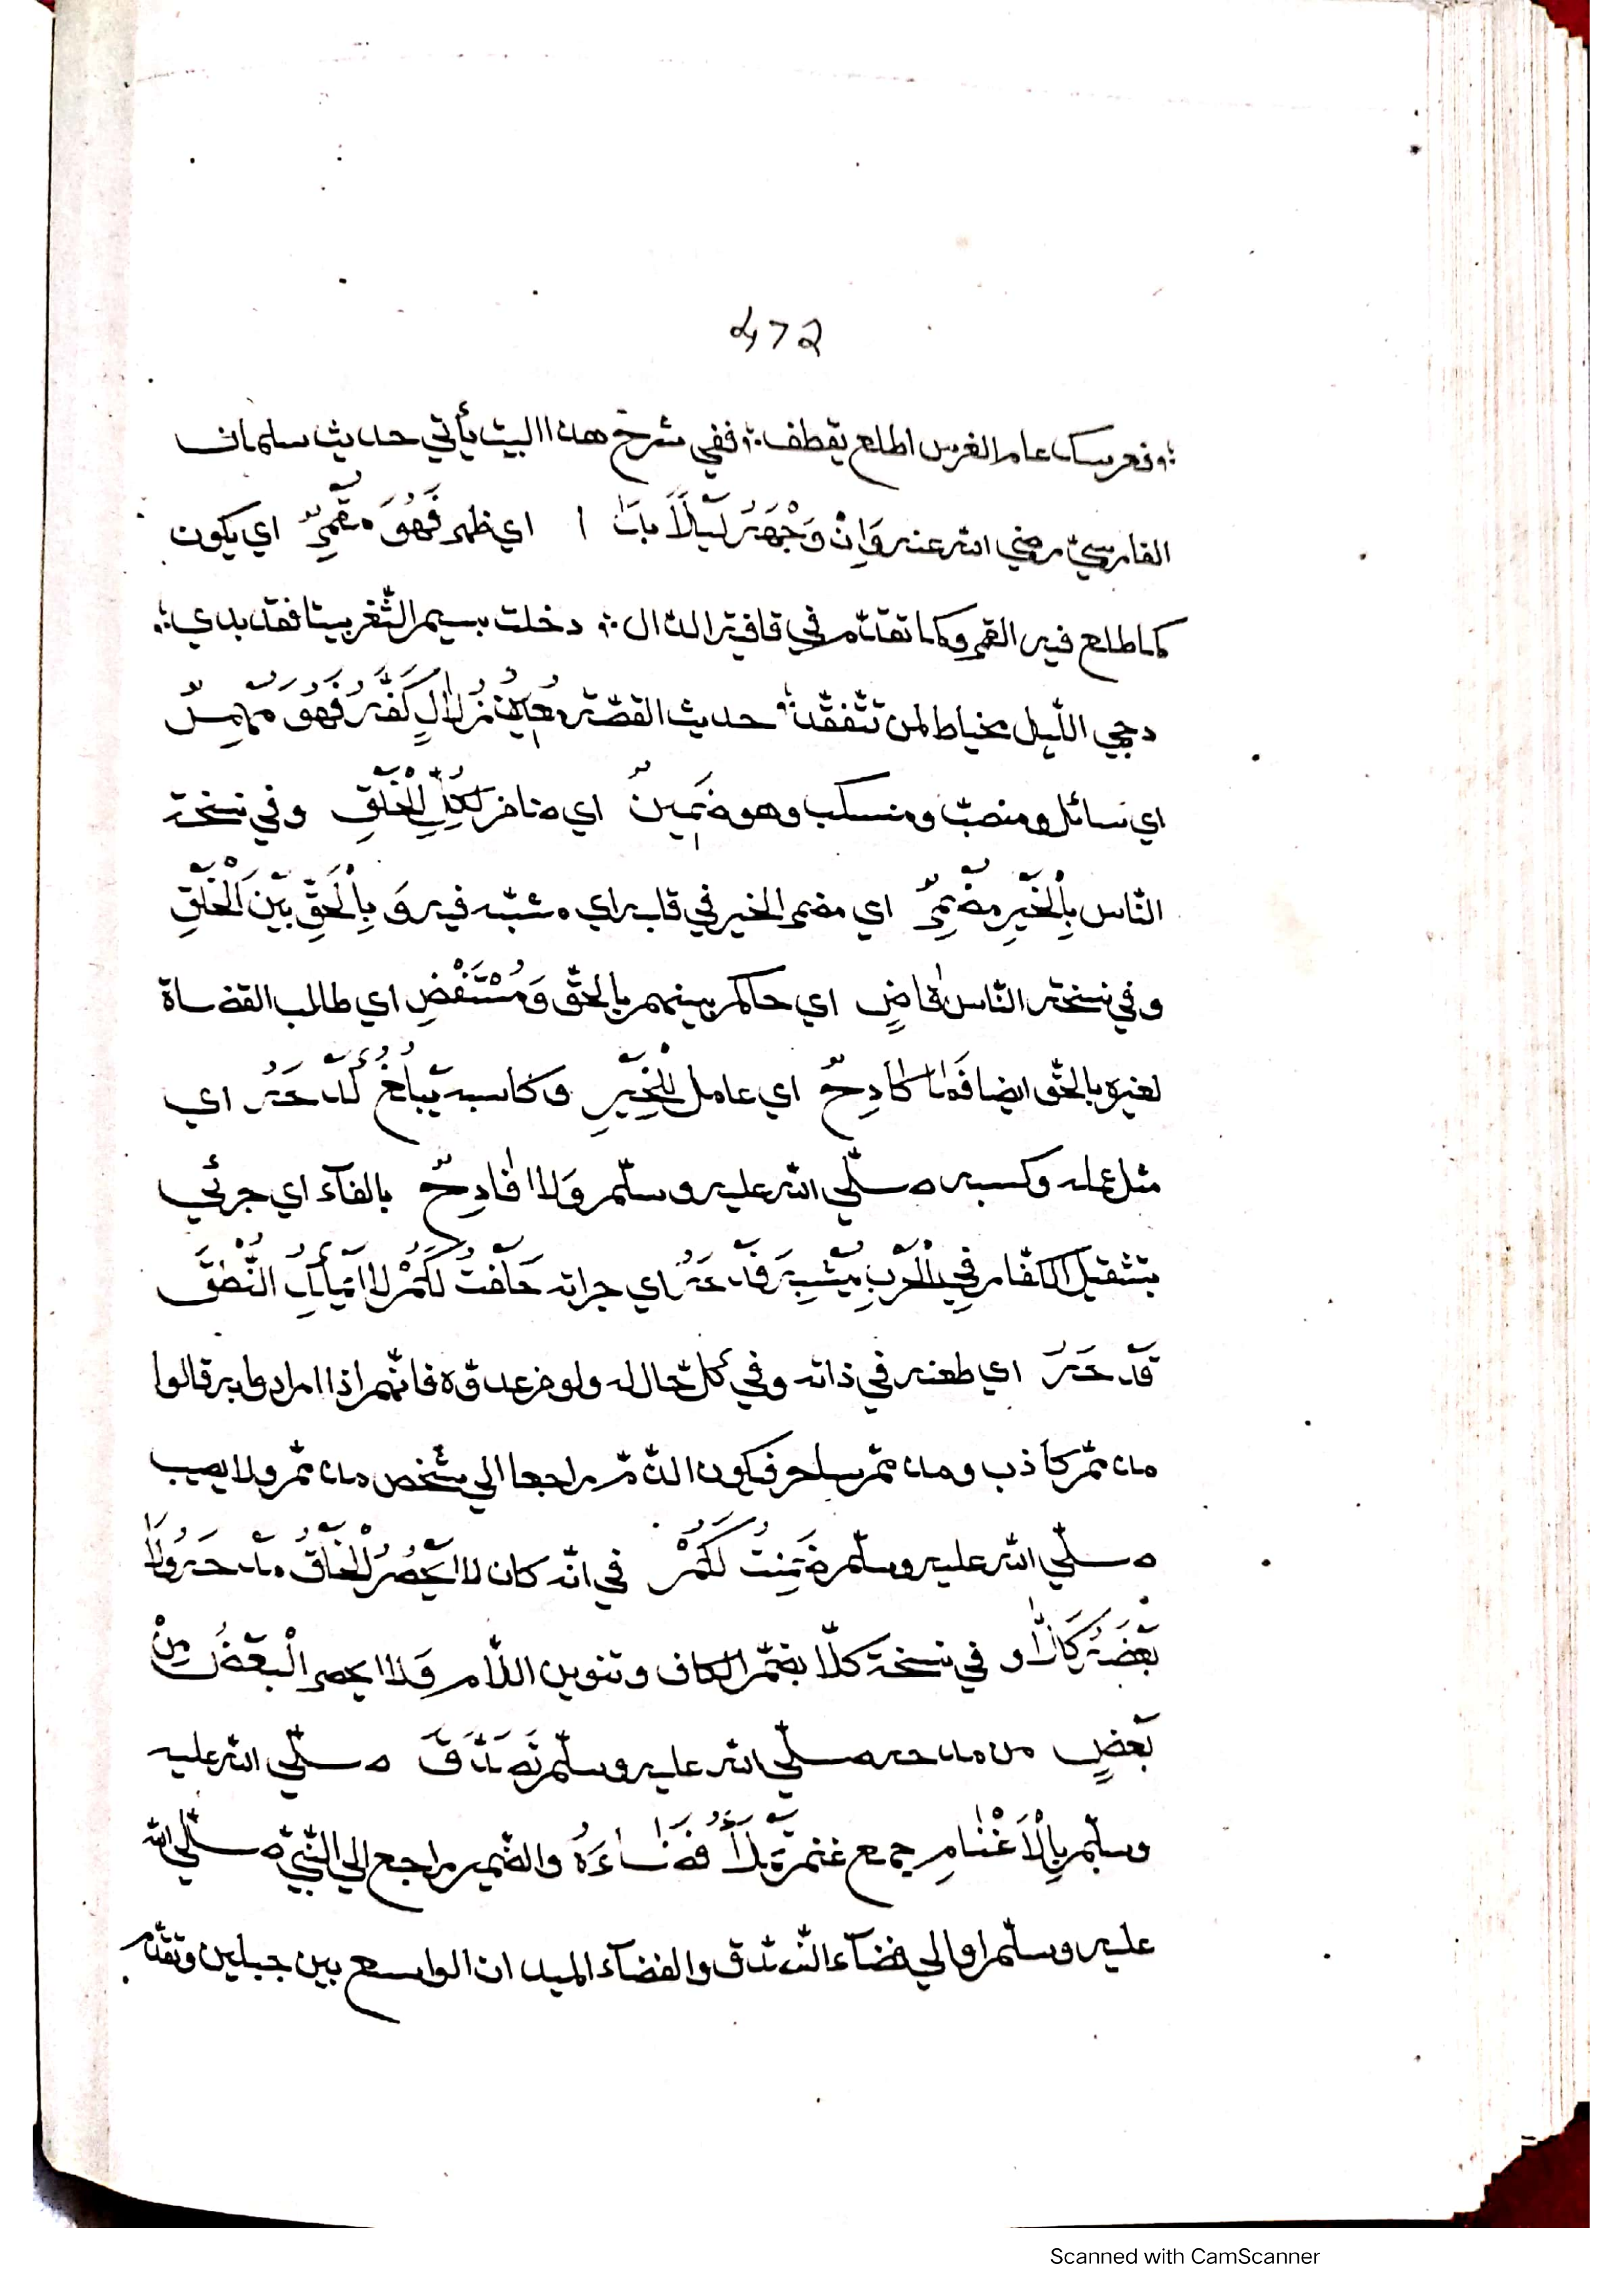 472
؞ وغريسك عام الغرس اطلع يقطف ؞ ففي شرح هذا البيت يأتي حديث سلمان
الفارسيّ رضي الله عنه وَاِنْ وَجْهُهُ لَيْلًا بَدَا اي ظهر فَهُوَ مُقْمِرٌ اي يكون
كما طلع فيه القمر وكما تقدّم في قافية الدال ؞ دخلت بسيم الثّغر بيتا فقد بدي ؞
دجي اللّيل مخياط لمن تتفقّد ؞ حديث القصّة مَعِيْنُ زُلَالٍ كَفُّهُ فَهُوَ مُهْمِرٌ
اي سائل ومنصبّ ومنسكب وهو ضَمِينٌ اي ضامن لِكُلِّ الْخَلْقِ وفي نسخة
النّاس بِالْخَيْرِ مُضْمِرٌ اي مضمر الخير في قلبه اي مثبته فيه وَ بِالْحَقِّ بَيْنَ الْخَلْقِ
وفي نسخة النّاس قَاضٍ اي حاكم بينهم بالحقّ وَمُسْتَقْضٍ اي طالب القضاة
لغيره بالحقّ ايضا فَمَا كَادِحٌ اي عامل لِلْخَيْرِ وكاسبه يَبْلُغُ كَدْحَهُ اي
مثل عمله وكسبه صلّي الله عليه وسلّم وَلَا فَادِحٌ بالفآء اي جرئي
بتثقيل الكفّار فِي الْحَرْبِ يُشْبِهُ فَدْحَهُ اي جراته حَلَفْتُ لَكُمْ لَا يَمْلِكُ النُّطْقَ
قَدْحَهُ اي طعنه في ذاته وفي كلّ حال له ولو من عدوّه فانّهم اذا ارادوا به قالوا
مذمّم كاذب ومذمّم ساحر فيكون الذّمّ راجعا الي شخص مذمّم ولا يصيب
صلّي الله عليه وسلّم ضَمِنْتُ لَكُمْ في انّه كان لَا يَحْصُرُ الْخَلْقُ مَدْحَهُ وَلَا
بَعْضَهُ كَلَّا و في نسخة كلّا بضمّ الكاف وتنوين اللّام وَلَا يحصر الْبَعْضُ مِنْ
بَعْضٍ من مدحه صلّي الله عليه وسلّم تَصَدَّقَ صلّي الله عليه
وسلّم بِالْاَغْنَامِ جمع غنم تَمْلَأُ فَضَاءَهُ والضّمير راجع الي النّبيّ صلّي الله
عليه وسلّم او الي فضآء التّصدّق والفضآء الميدان الواسع بين جبلين وتقدّم
Scanned with CamScanner